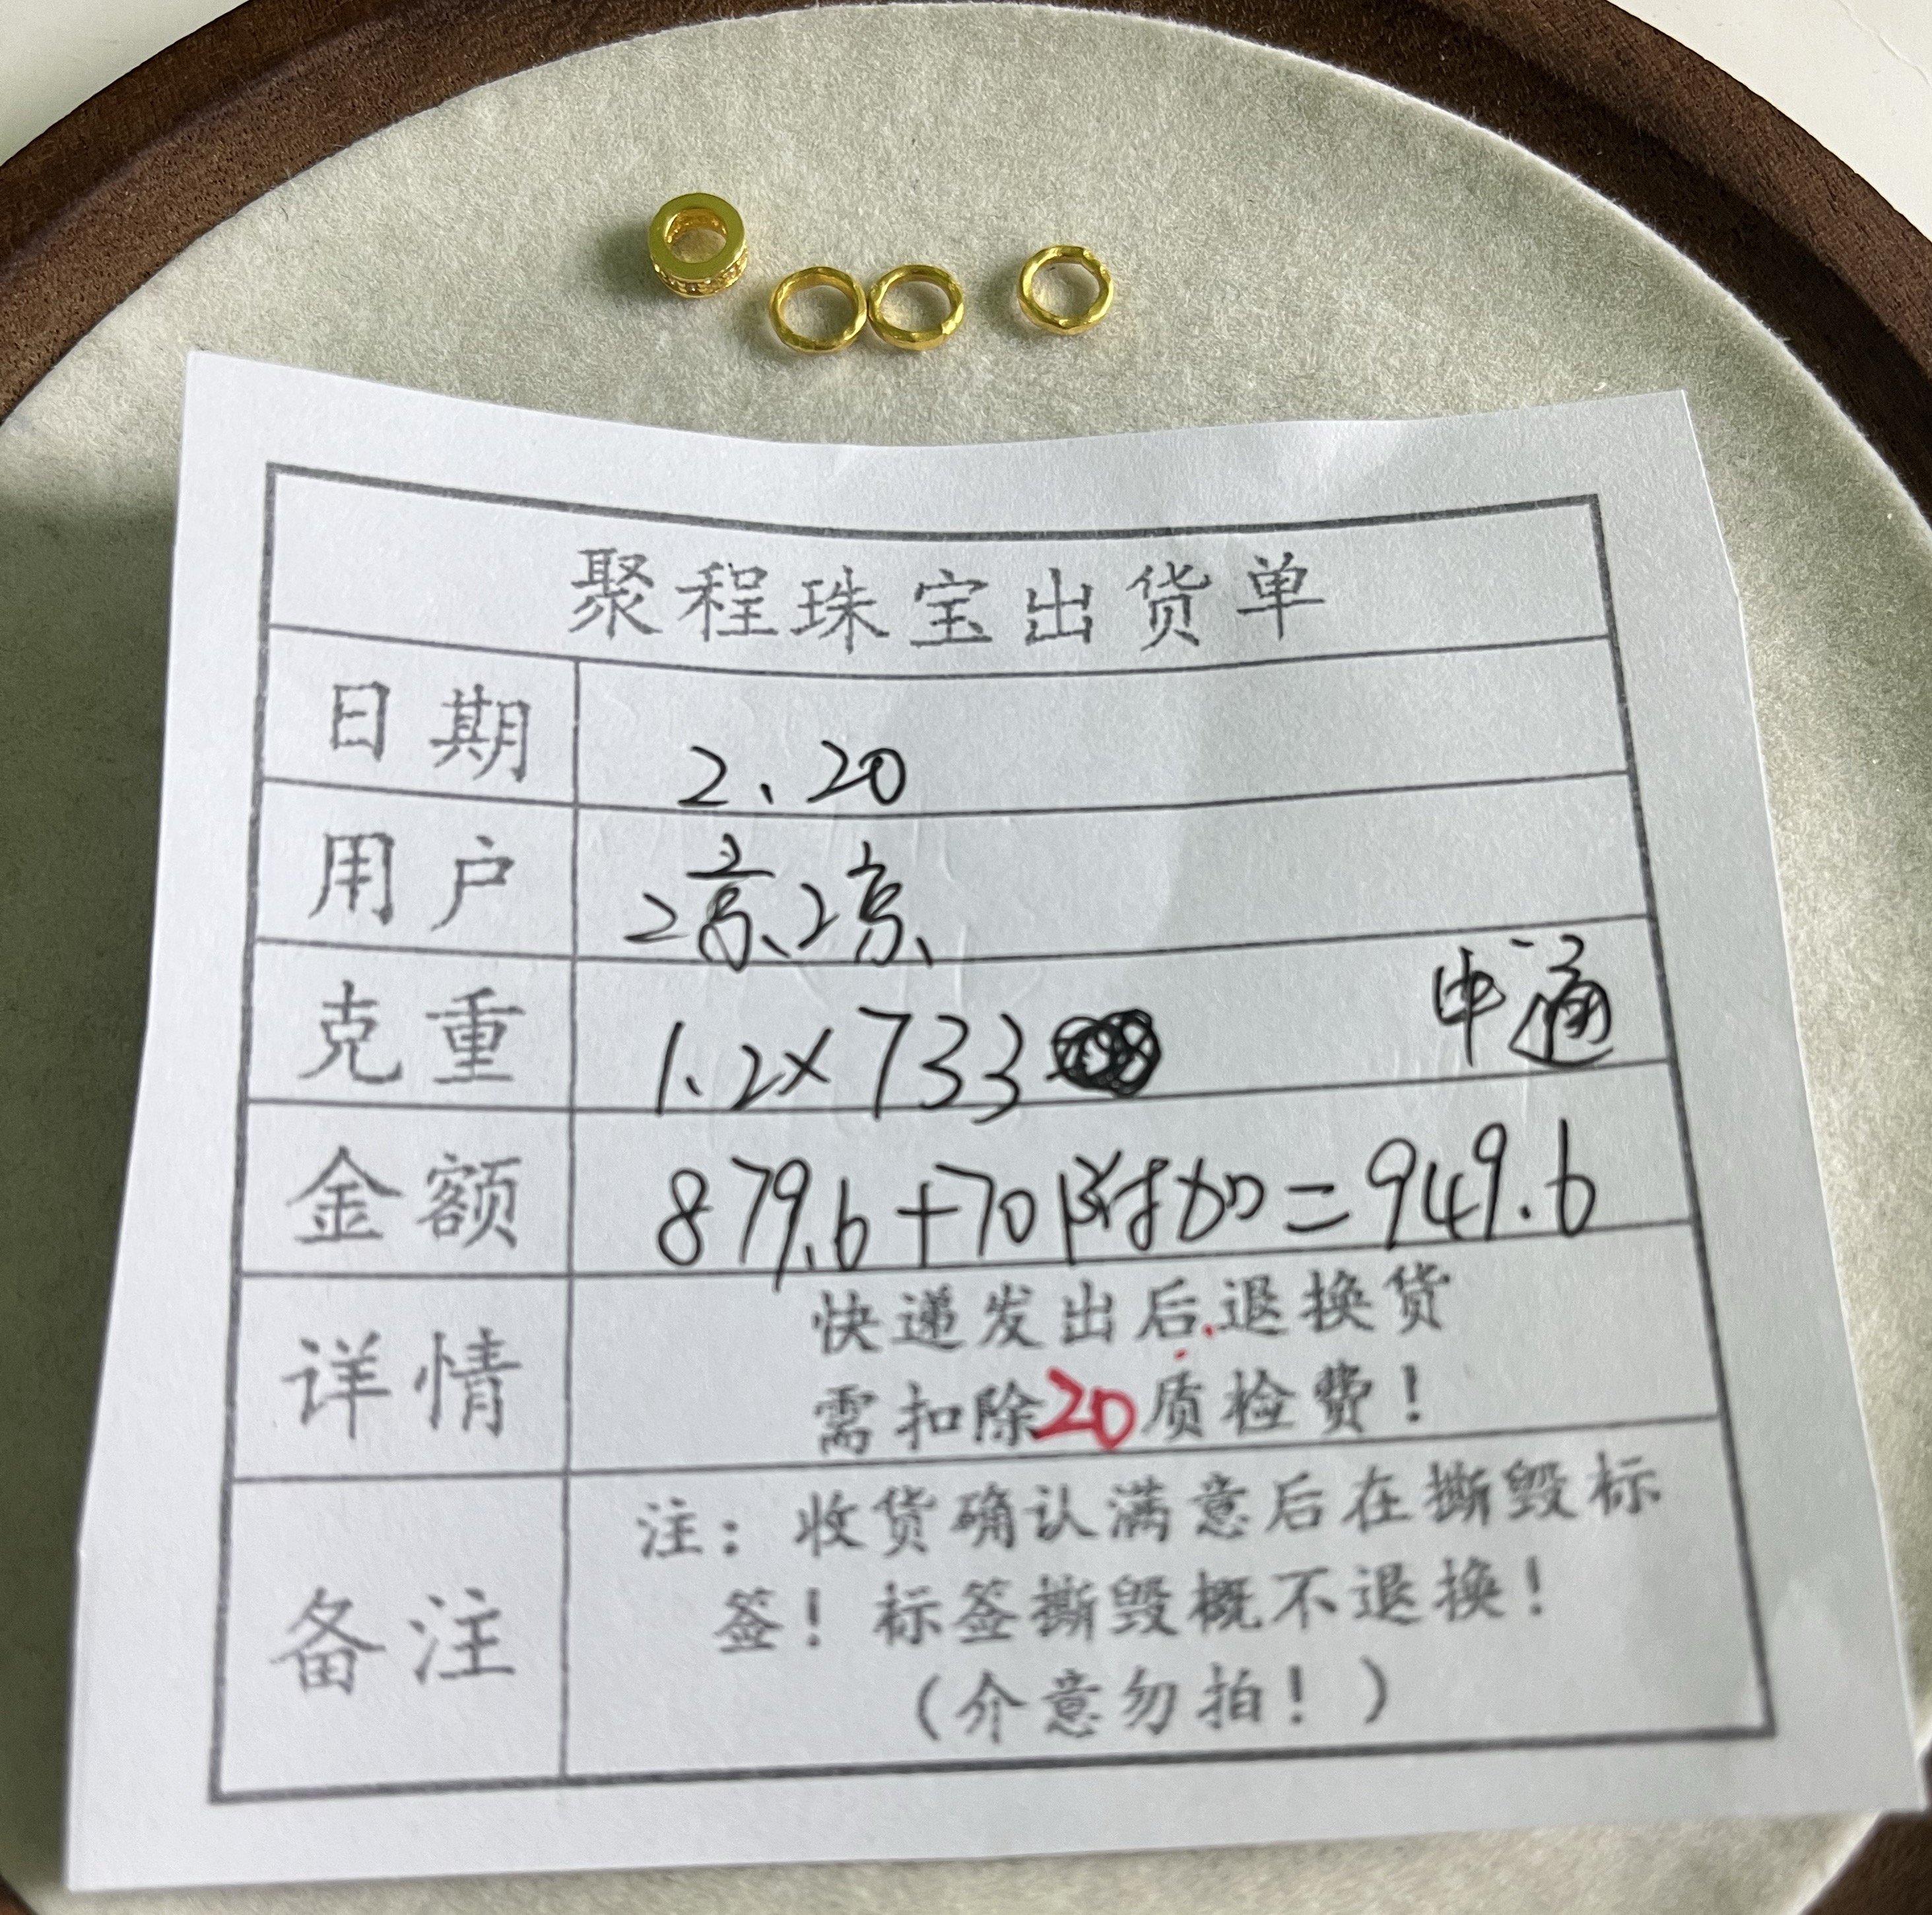 聚程珠宝出货单
日期 2.20
用户 凉凉
克重 1.2×733 申通
金额 879.6+70附加=949.6
详情 快递发出后.退换货
需扣除20质检费！
备注 注：收货确认满意后在撕毁标
签！标签撕毁概不退换！
（介意勿拍！）